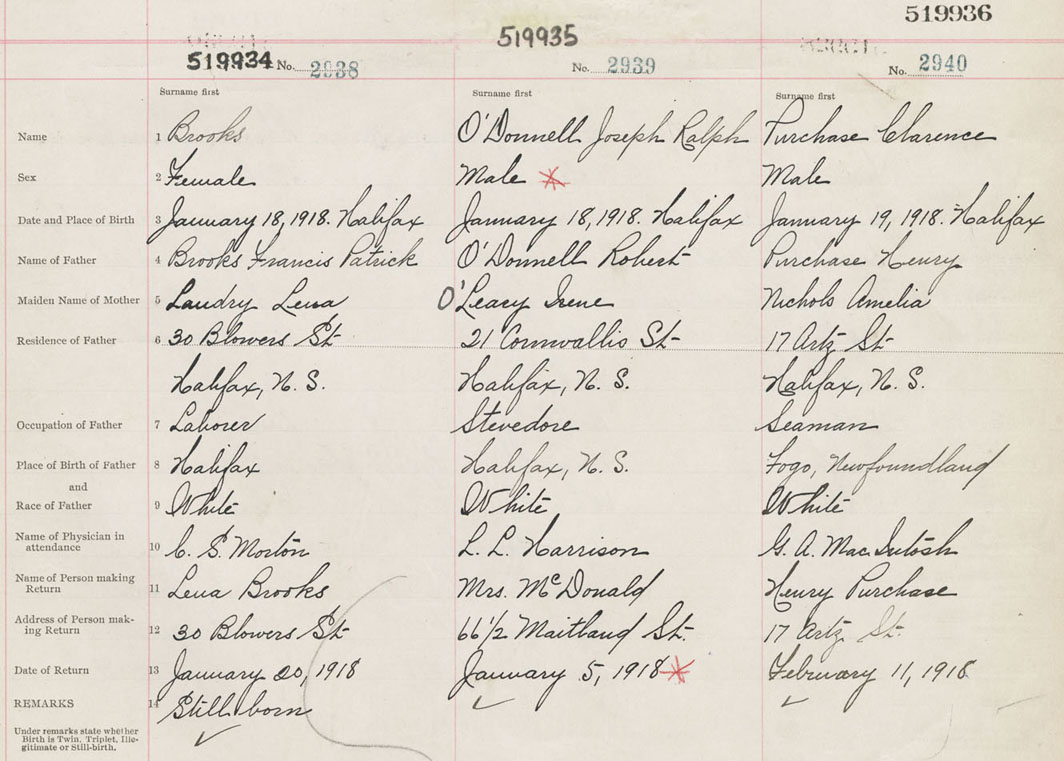 519936
519935
519934 No. 2938 No. 2939 No. 2940
Surname first Surname first Surname first
Name 1 Brooks O'Donnell Joseph Ralph Purchase Clarence
Sex 2 Female Male Male
Date and Place of Birth 3 January 18, 1918. Halifax January 18, 1918. Halifax January 19, 1918. Halifax
Name of Father 4 Brooks Francis Patrick O'Donnell Robert Purchase Henry
Maiden Name of Mother 5 Landry Lena O'Leacy Irene Nichols Amelia
Residence of Father 6 30 Blowers St 21 Cornwallis St 17 Artz St
Halifax, N. S. Halifax, N. S. Halifax, N. S.
Occupation of Father 7 Laborer Stevedore Seaman
Place of Birth of Father 8 Halifax Halifax, N. S. Fogo, Newfoundland
and
Race of Father 9 White White White
Name of Physician in attendance 10 C. S. Morton L. L. Harrison G. A. MacIntosh
Name of Person making Return 11 Lena Brooks Mrs. McDonald Henry Purchase
Address of Person mak-
ing Return 12 30 Blowers St 66 1/2 Maitland St. 17 Artz St.
Date of Return 13 January 20, 1918 January 5, 1918 February 11, 1918
REMARKS 14 Still born
Under remarks state whether
Birth is Twin, Triplet, Ille-
gitimate or Still-birth.